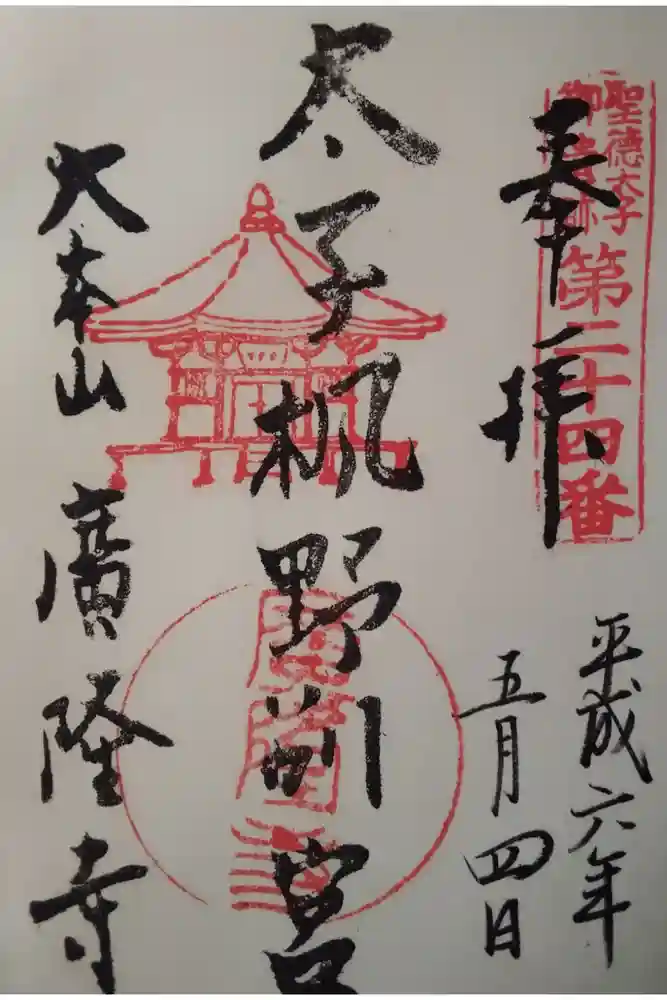 聖徳太子
御遺跡第二十四番
奉拝
平成六年
五月四日
太子楓野別宮
廣隆寺
大本山 廣隆寺